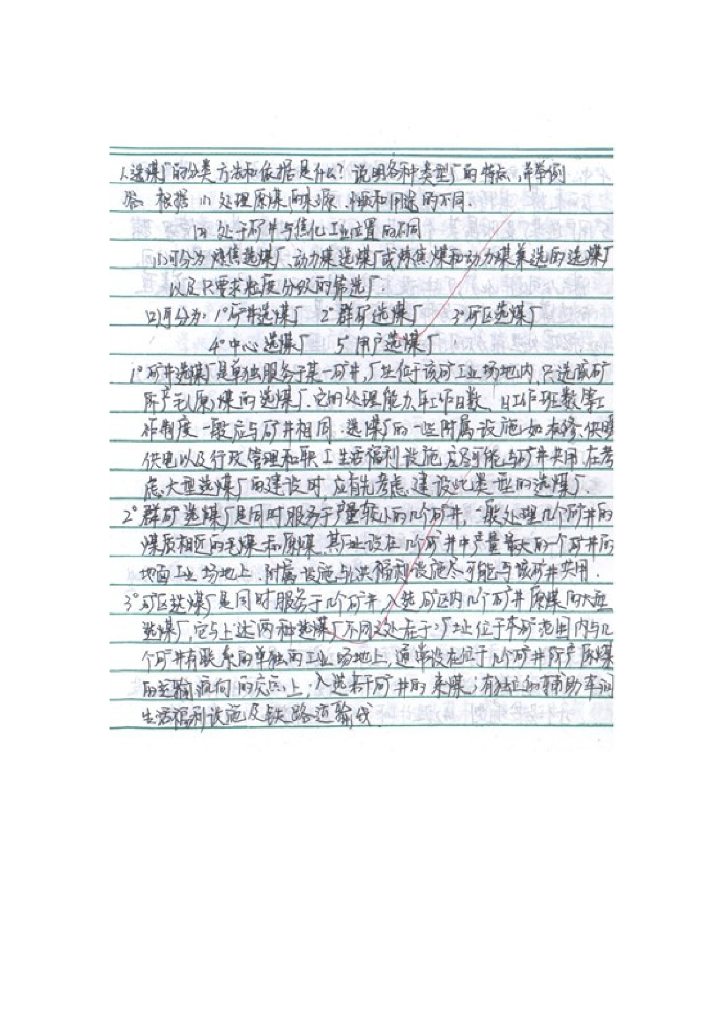 1、选煤厂的分类方法和依据是什么?说明各种类型厂的特点,并举例
答:根据 (1) 处理原煤的来源、性质和用途的不同.
(2) 处于矿井与焦化工业位置的不同
(1)可分为炼焦选煤厂、动力煤选煤厂或炼焦煤和动力煤兼选的选煤厂
以及只要求粒度分级的筛选厂.
(2)可分为: 1°矿井选煤厂 2°群矿选煤厂 3°矿区选煤厂
4°中心选煤厂 5°用户选煤厂
1°矿井选煤厂是单独服务于某一矿井,厂址位于该矿工业场地内,只选该矿
所产毛(原)煤的选煤厂.它的处理能力、年工作日数、日工作班数等工
作制度一般应与矿井相同.选煤厂的一些附属设施如机修、供暖
供电以及行政管理和职工生活福利设施应尽可能与矿井共用.在考
虑大型选煤厂的建设时,应首先考虑建设此类型的选煤厂.
2°群矿选煤厂是同时服务于产量较小的几个矿井,一般处理几个矿井的
煤质相近的毛煤和原煤,其厂址设在几个矿井中产量最大的一个矿井的
地面工业场地上.附属设施与生活福利设施尽可能与该矿井共用.
3°矿区选煤厂是同时服务于几个矿井,入选矿区内几个矿井原煤的大型
选煤厂,它与上述两种选煤厂不同之处在于:厂址位于本矿范围内与几
个矿井有联系的单独的工业场地上,通常设在位于几个矿井所产原煤
的运输流向的交点上,入选若干矿井的来煤;有独立的辅助车间
生活福利设施及铁路运输线